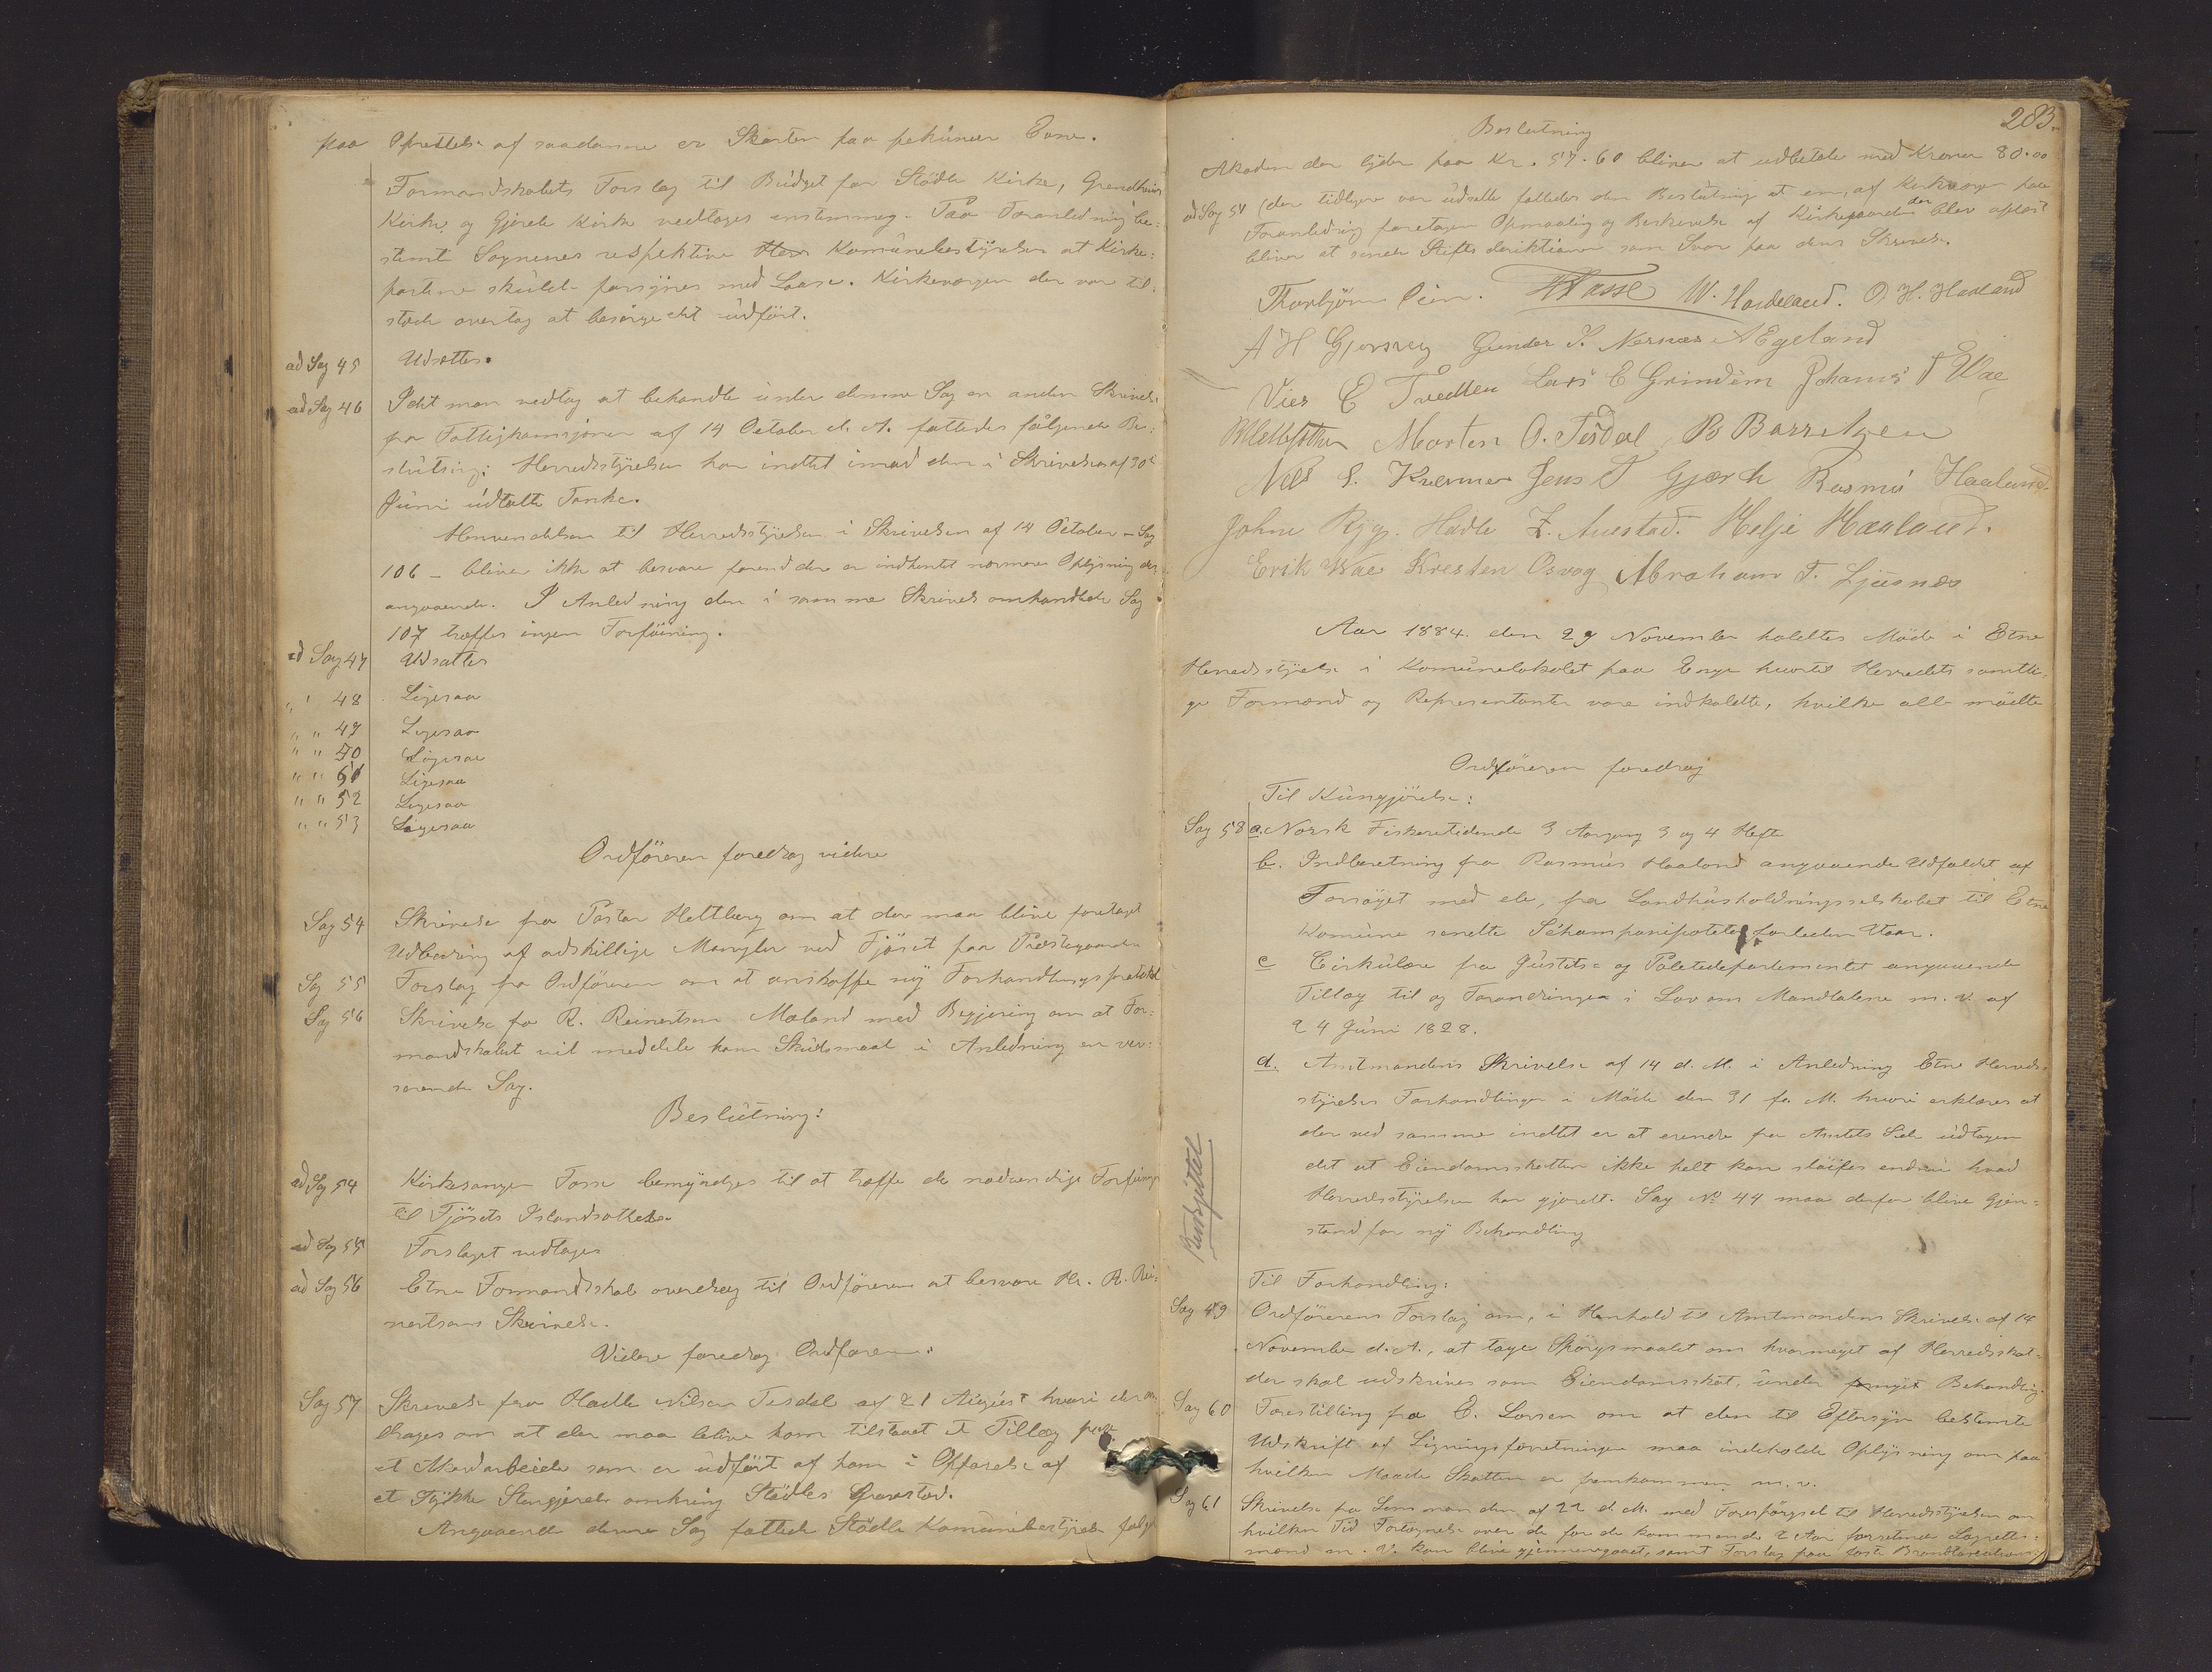 paa Oprettelse af saadanne er Skorten paa pekuniær Evne.
Formandskabets Forslag til Budget for Stödle Kirke, Grindheim
Kirke og Gjerde Kirke vedtages enstemmig. Paa Foranledning be-
stemte Sognenes respektive Komünebestyrelser at Kirke-
portene skülde forsynes med Laase. Kirkeværgen der var til-
stede overtog at besörge det üdfört.
ad Sag 45 Udsættes.
ad Sag 46 Idet man vedtog at behandle ünder denne Sag en anden Skrivelse
fra Fattigkomisjonen af 14 October d. A. fattedes fölgende Be-
slütning: Herredsstyrelsen har indtet imod den i Skrivelsen af 30te
Jüni üdtalte Tanke.
Henvendelsen til Herredsstyrelsen i Skrivelsen af 14 October - Sag
106 - bliver ikke at besvare forend der er indhentet nærmere Oplysning des-
angaaende. I Anledning den i samme Skrivelse omhandlede Sag
107 træffes ingen Forföining.
ad Sag 47 Udsættes
" " 48 Ligesaa
" " 49 Ligesaa
" " 50 Ligesaa
" " 51 Ligesaa
" " 52 Ligesaa
" " 53 Ligesaa
Ordföreren foredrog videre
Sag 54 Skrivelse fra Pastor Hettberg om at der maa blive foretaget
Udbedring af adskillige Mangler ved Fjöset paa Præstegaarden
Sag 55 Forslag fra Ordföreren om at anskaffe ny Forhandlingsprotokol
Sag 56 Skrivelse fra R. Reinertsen Mæland med Begjæring om at For-
mandskabet vil meddele ham Sküdsmaal i Anledning en ver-
serende Sag.
Beslütning:
ad Sag 54 Kirkesanger Tosse bemyndiges til at træffe de nödvendige Forföining
til Fjösets Istandsættelse
ad Sag 55 Forslaget vedtages
ad Sag 56 Etne Formandskab overdrog til Ordföreren at besvare Hr. R. Rei-
nertsens Skrivelse.
Videre foredrog Ordföreren:
Sag 57 Skrivelse fra Hadle Nilsen Tesdal af 21 Aügüst hvori der an-
drages om at der maa blive ham tilstaaet et Tillæg paa
et Akordarbeide som er üdfört af ham i Opförelse af
et Stykke Stengjerde omkring Stödles Gravsted.
Angaaende denne Sag fattede Stödle Komünebestyrelse fölg
283.
Beslutning
Akorden der lyder paa Kr. 57.60 bliver at udbetale med Kroner 80.00
ad Sag 51 (der tidligere var üdsatte fattedes den Beslütning at en, af Kirkeværgen paa
Foranledning foretagen Opmaaling og Beskrivelse af Kirkegaarden der blev oplæst
bliver at sende Stiftsdirektionen som Svar paa dens Skrivelse.
Thorbjörn Öien. H Tosse W. Hardeland. O. H. Haaland
A H Gjersvig Gunder S. Nernæs A Egeland
Vier E Tvedten Lars E Grindeim Johanes T Wae
Morten O. Tesdal
Nels S. Jens T Gjærde Rasmus Haaland.
Johne Rygg. Hadle Z. Auestad. Helje Haaland.
Erik Wae Kresten Osvag Abraham T. Ljusnæs
Aar 1884. den 29 November holdtes Möde i Etne
Herredsstyrelse i Komünelokalet paa Enge hvortil Herredets samtli-
ge Formænd og Repræsentanter vare indkaldte, hvilke alle mödte
Ordföreren foredrog
Til Küngjörelse:
Sag 58 a. Norsk Fiskeritidende 3 Aargang 3 og 4 Hefte
b. Indberetning fra Rasmüs Haaland angaaende Udfaldet af
Forsöget med de, fra Landhüsholdningsselskabet til Etne
Komüne sendte Schampionpoteter forleden Vaar.
c Cirkülære fra Jüstits- og Politidepartementet angaaende
Tillæg til og Forandringer i Lov om Mandtalene m. v. af
24 Jüni 1828.
d. Amtmandens Skrivelse af 14 d. M. i Anledning Etne Herreds-
styrelses Forhandlinger i Möde den 31 f. M. hvori erklæres at
der ved samme indtet er at erindre fra Amtets Side üdtagen
det at Eiendomsskatten ikke helt kan slöifes endnü hvad
Herredsstyrelsen har gjordt. Sag No 44 maa derfor blive Gjen-
stand for ny Behandling
Til Forhandling:
Sag 59 Ordförerens Forslag om, i Henhold til Amtmandens Skrivelse af 14
November d. A., at tage Spörgsmaalet om hvormeget af Herredsskat-
der skal üdskrives som Eiendomsskat, ünder fornyet Behandling
Sag 60 Forestilling fra E. Larsen om at den til Eftersyn bestemte
Udskrift af Ligningsforretningen maa indeholde Oplysning om paa
hvilken Maade Skatten er fremkommen m. v.
Sag 61 Skrivelse fra Lensmanden af 22 d. M. med Forespörgsel til Herredsstyrelsen om
hvilken Tid Fortegnelse over de for de kommende 2 Aar forrettende Lagrettes-
mænd m. v. kan blive gjennemgaaet, samt Forslag paa